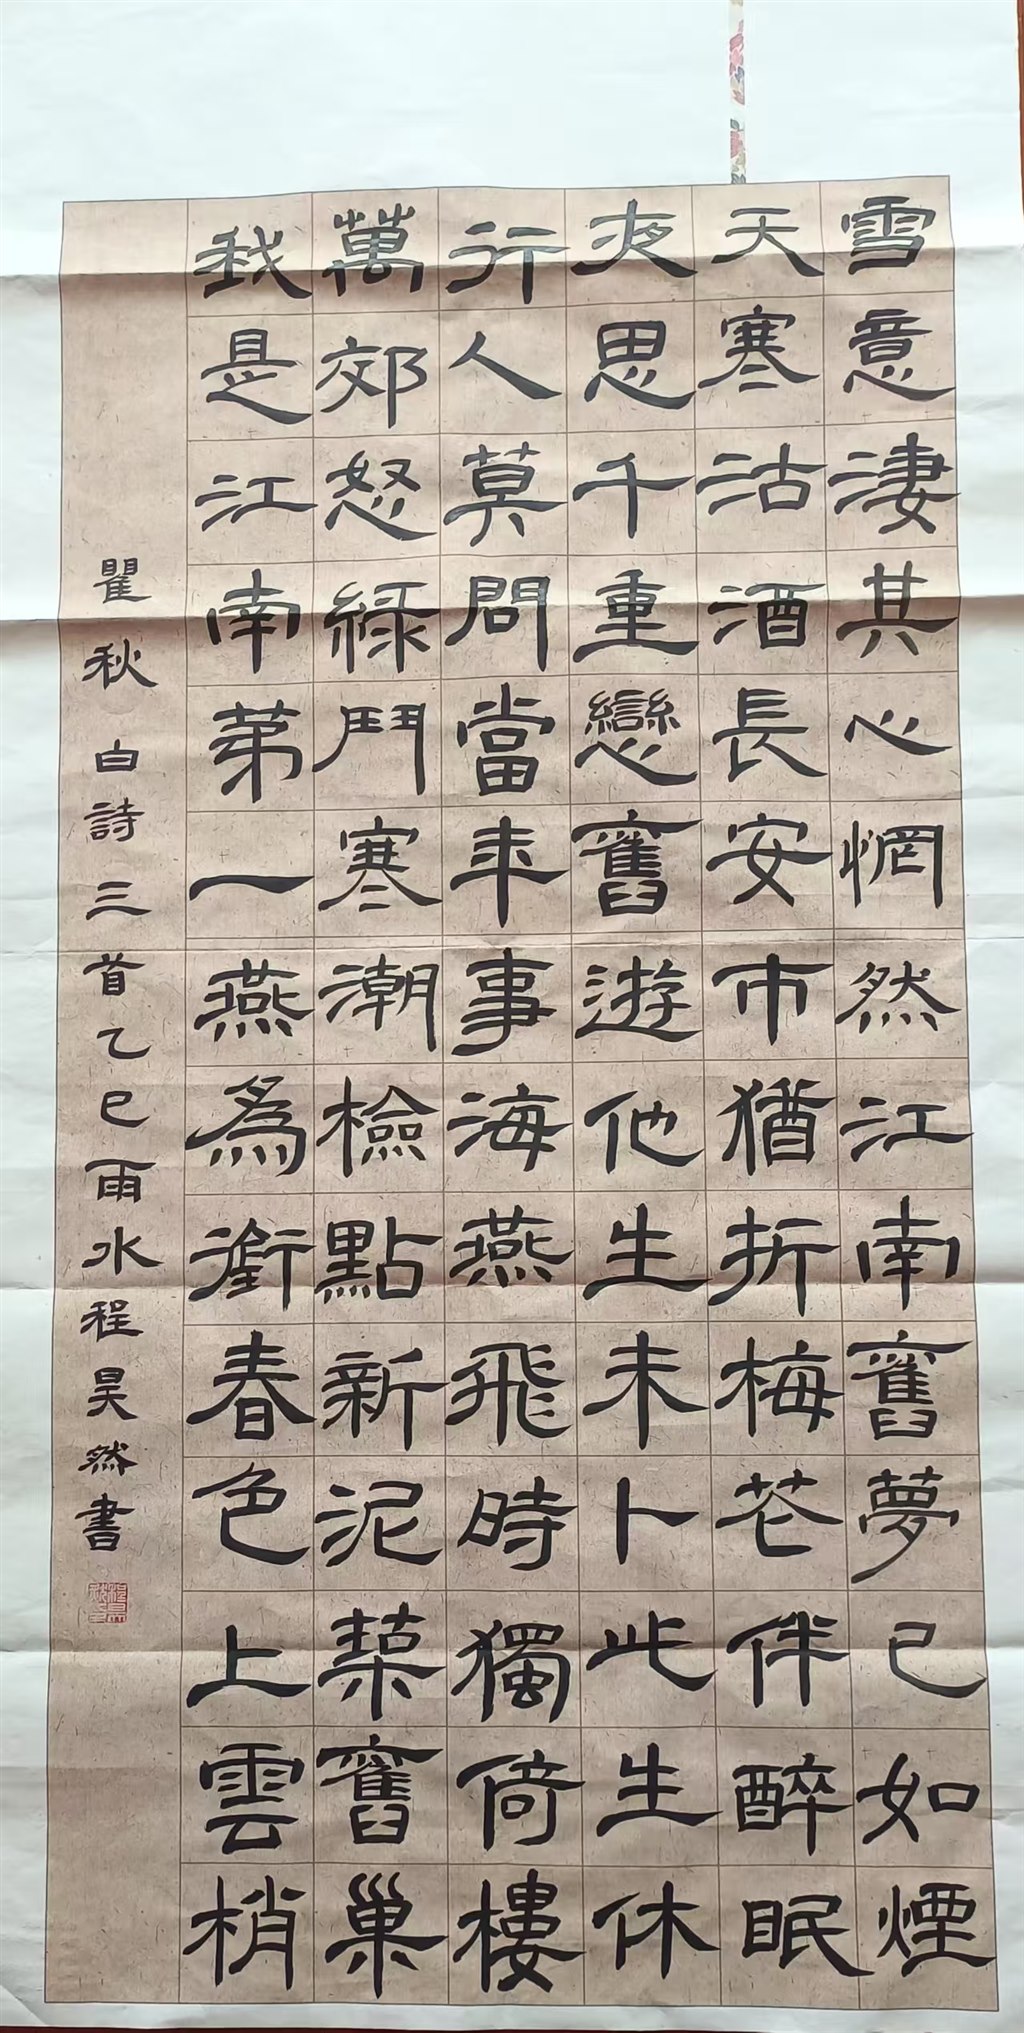 雪意淒其心惘然江南舊夢已如煙
天寒沽酒長安市猶折梅花伴醉眠
夜思千重戀舊遊他生未卜此生休
行人莫問當年事海燕飛時獨倚樓
萬郊怒綠鬥寒潮檢點新泥築舊巢
我是江南第一燕爲銜春色上雲梢
瞿秋白詩三首乙巳雨水程昊然書